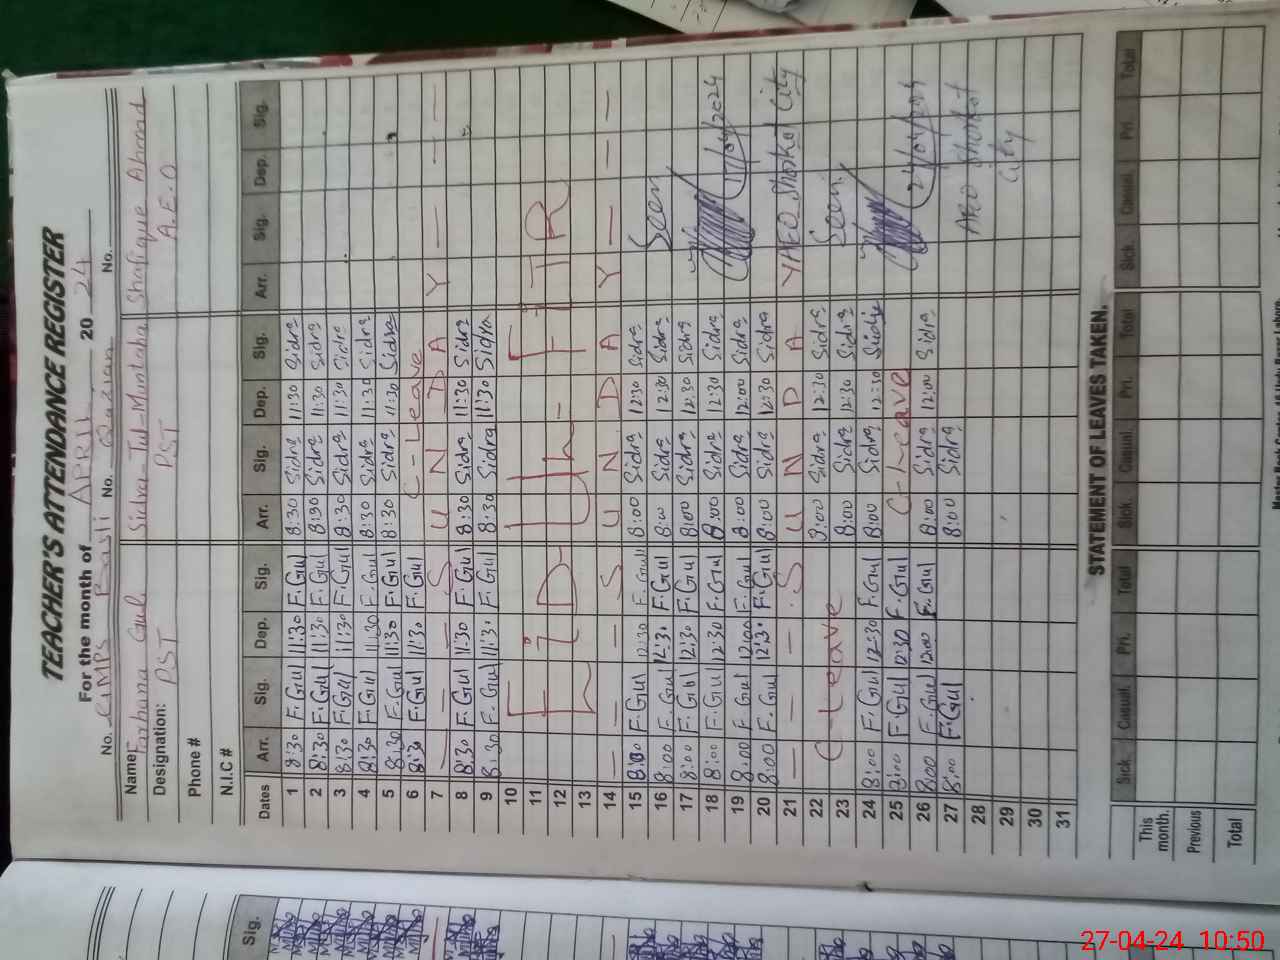 TEACHER'S ATTENDANCE REGISTER
For the month of APRIL 20 24
No. GMPS Basti No. Qazian No.
Name Farhana Gul Sidra-Tul-Muntaha Shafique Ahmad
Designation: PST PST A.E.O
Phone #
N.I.C #
Dates Arr. Sig. Dep. Sig. Arr. Sig. Dep. Sig. Arr. Sig. Dep. Sig.
1 8:30 F.Gul 11:30 F.Gul 8:30 Sidra 11:30 Sidra
2 8:30 F.Gul 11:30 F.Gul 8:30 Sidra 11:30 Sidra
3 8:30 F.Gul 11:30 F.Gul 8:30 Sidra 11:30 Sidra
4 8:30 F.Gul 11:30 F.Gul 8:30 Sidra 11:30 Sidra
5 8:30 F.Gul 11:30 F.Gul 8:30 Sidra 11:30 Sidra
6 8:30 F.Gul 11:30 F.Gul C-Leave
7 — — — S U N D A Y — — —
8 8:30 F.Gul 11:30 F.Gul 8:30 Sidra 11:30 Sidra
9 8:30 F.Gul 11:30 F.Gul 8:30 Sidra 11:30 Sidra
10
11 EiD-Ul-FiTR
12
13
14 — — — S U N D A Y — — —
15 8:00 F.Gul 12:30 F.Gul 8:00 Sidra 12:30 Sidra Seen
16 8:00 F.Gul 12:30 F.Gul 8:00 Sidra 12:30 Sidra
17 8:00 F.Gul 12:30 F.Gul 8:00 Sidra 12:30 Sidra
18 8:00 F.Gul 12:30 F.Gul 8:00 Sidra 12:30 Sidra
19 8:00 F.Gul 12:00 F.Gul 8:00 Sidra 12:00 Sidra
20 8:00 F.Gul 12:30 F.Gul 8:00 Sidra 12:30 Sidra
21 — — — S U N D A Y AEO Shorkot City
22 C-Leave 8:00 Sidra 12:30 Sidra Seen
23 8:00 Sidra 12:30 Sidra
24 8:00 F.Gul 12:30 F.Gul 8:00 Sidra 12:30 Sidra
25 8:00 F.Gul 12:30 F.Gul C-Leave
26 8:00 F.Gul 12:00 F.Gul 8:00 Sidra 12:00 Sidra
27 8:00 F.Gul 8:00 Sidra
28 AEO Shorkot
29 City
30
31
STATEMENT OF LEAVES TAKEN.
Sick. Casual. Pri. Total Sick. Casual. Pri. Total Sick. Casual. Pri. Total
This month.
Previous
Total
Sig.
27-04-24 10:50